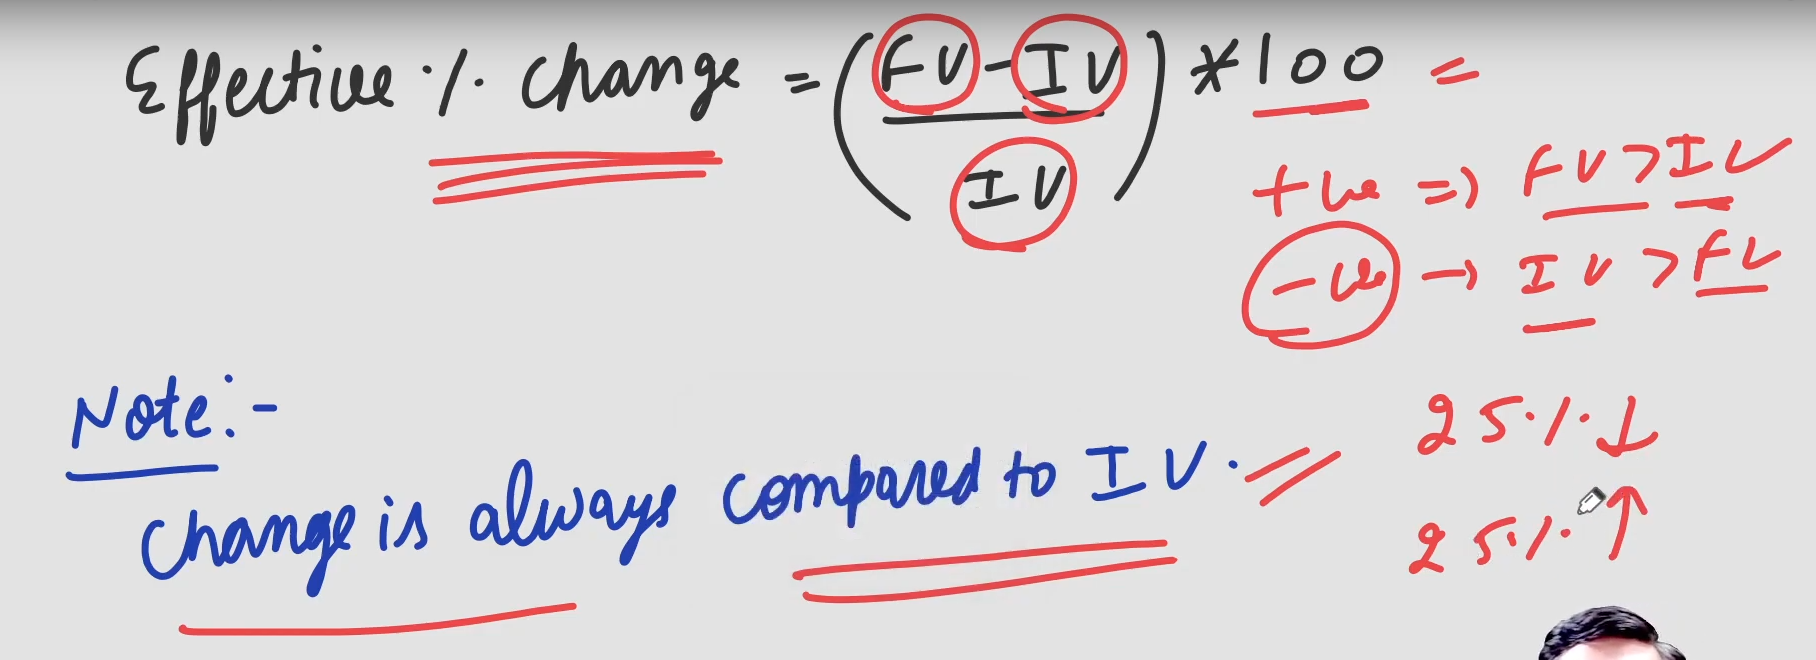 Effective % change = (FV - IV / IV) * 100 =
+ve => FV > IV
-ve → IV > FV
Note:-
Change is always compared to IV.
25% ↓
25% ↑